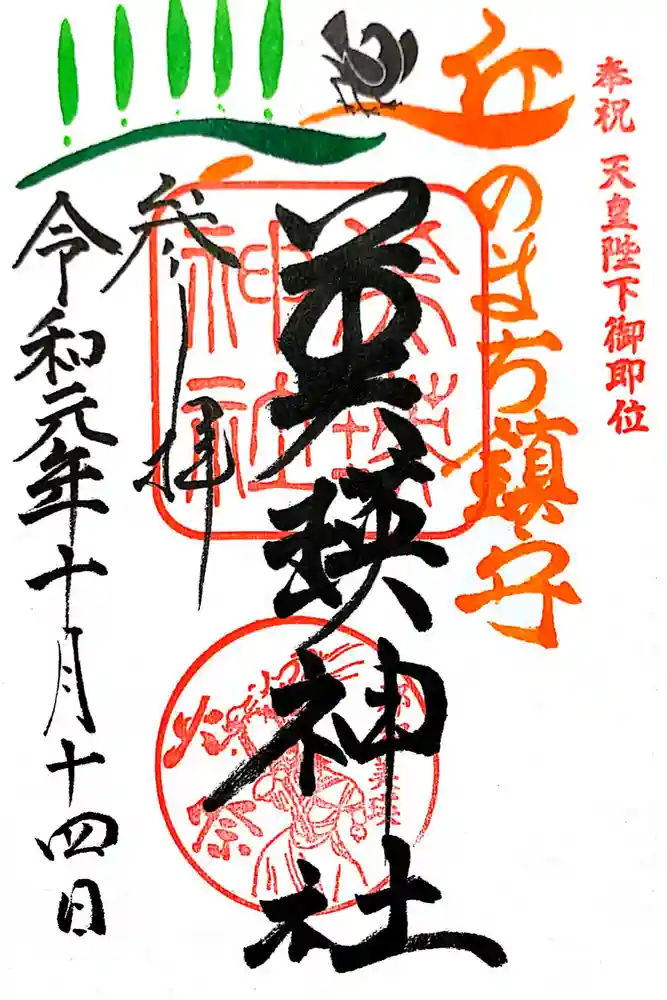 奉祝 天皇陛下御即位
丘のまち鎮守
美瑛神社
参拝
令和元年十月十四日
美瑛
神社
火祭